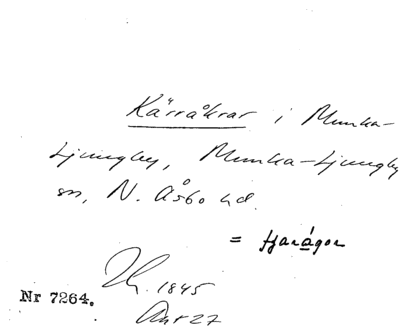 Kärråkrar i Munka-
Ljungby, Munka-Ljungby
sn, N. Åsbo hd.
= tjarågor
1845
Nr 7264.
27